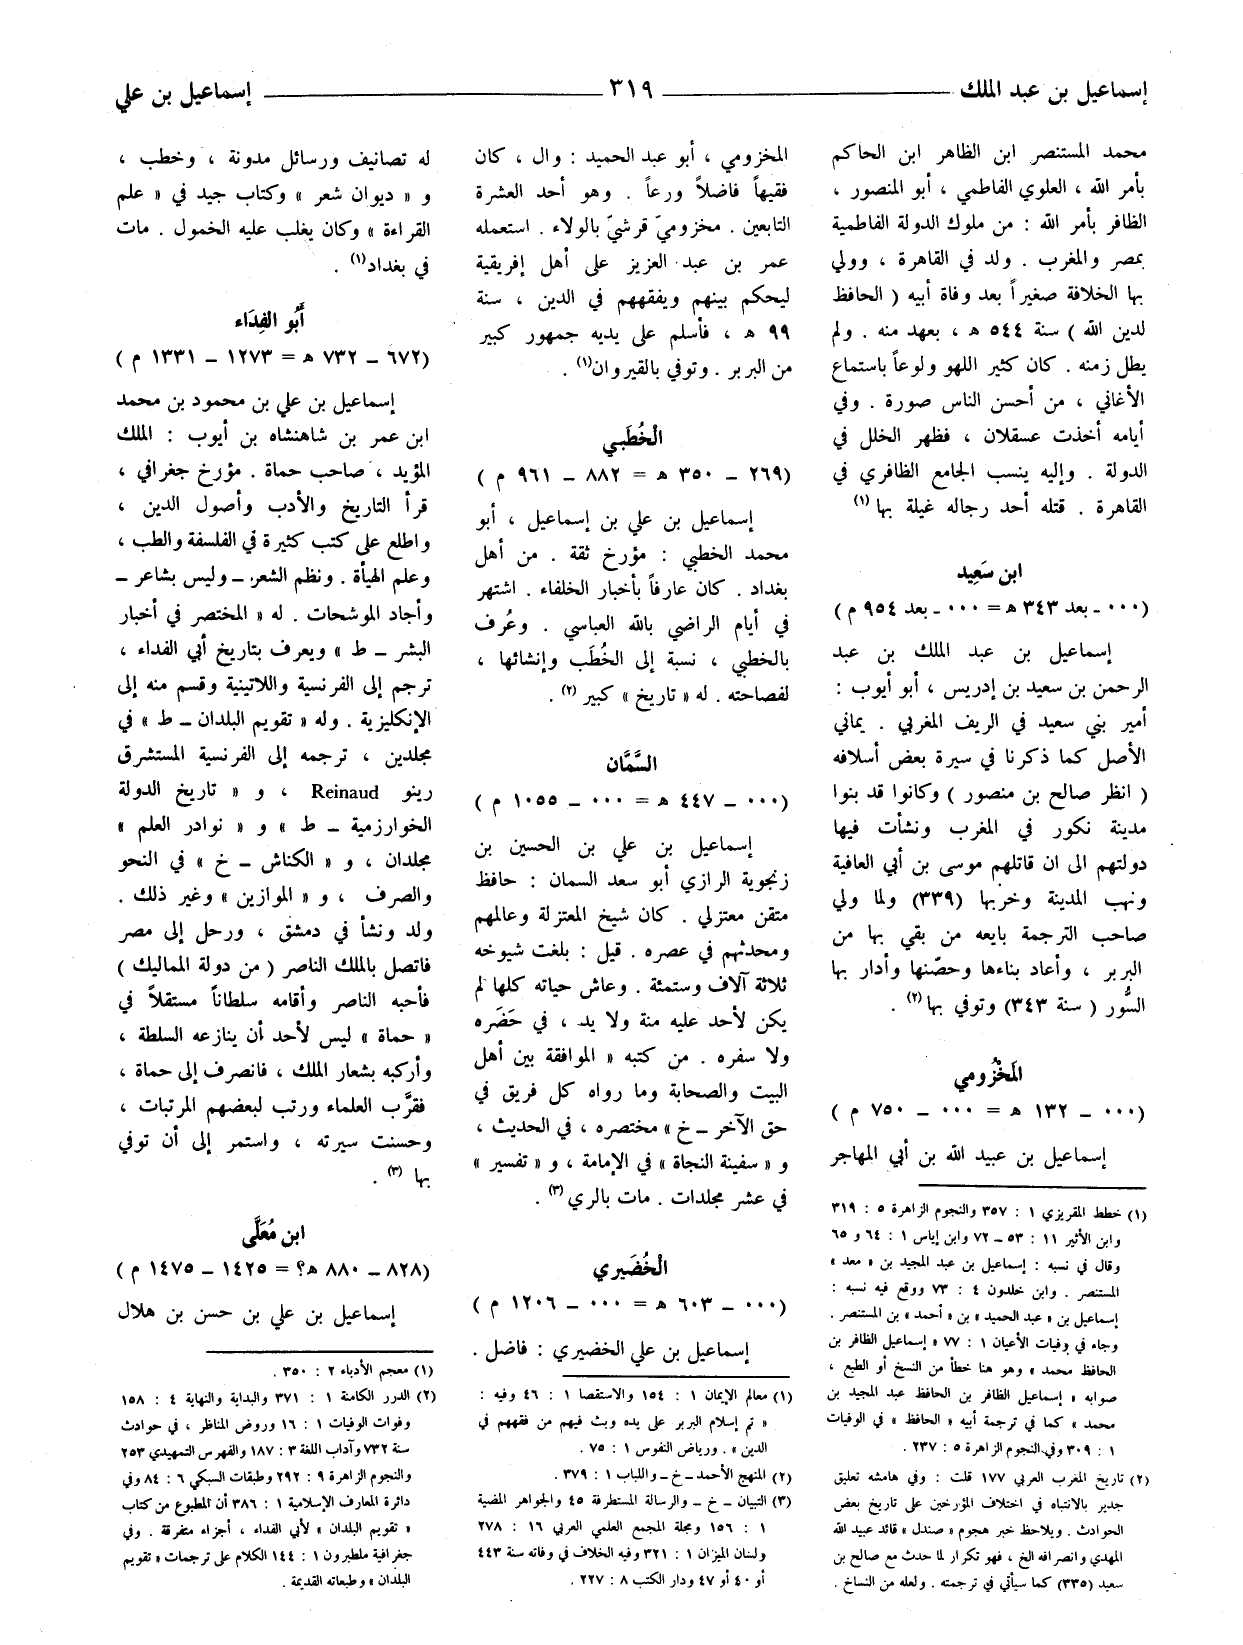 إسماعيل بن عبد الملك
٣١٩
إسماعيل بن علي
محمد المستنصر ابن الظاهر ابن الحاكم
بأمر الله ، العلوي الفاطمي ، أبو المنصور ،
الظافر بأمر الله : من ملوك الدولة الفاطمية
بمصر والمغرب . ولد في القاهرة ، وولي
بها الخلافة صغيراً بعد وفاة أبيه ( الحافظ
لدين الله ) سنة ٥٤٤ هـ ، بعهد منه . ولم
يطل زمنه . كان كثير اللهو ولوعاً باستماع
الأغاني ، من أحسن الناس صورة . وفي
أيامه أخذت عسقلان ، فظهر الخلل في
الدولة . وإليه ينسب الجامع الظافري في
القاهرة . قتله أحد رجاله غيلة بها (١)
ابن سَعِيد
(٠٠٠ ـ بعد ٣٤٣ هـ = ٠٠٠ ـ بعد ٩٥٤ م )
إسماعيل بن عبد الملك بن عبد
الرحمن بن سعيد بن إدريس ، أبو أيوب :
أمير بني سعيد في الريف المغربي . يماني
الأصل كما ذكرنا في سيرة بعض أسلافه
( انظر صالح بن منصور ) وكانوا قد بنوا
مدينة نكور في المغرب ونشأت فيها
دولتهم الى ان قاتلهم موسى بن أبي العافية
ونهب المدينة وخربها (٣٣٩) ولما ولي
صاحب الترجمة بايعه من بقي بها من
البربر ، وأعاد بناءها وحصّنها وأدار بها
السُّور ( سنة ٣٤٣) وتوفي بها(٢) .
المَخْزُومي
(٠٠٠ ـ ١٣٢ هـ = ٠٠٠ ـ ٧٥٠ م )
إسماعيل بن عبيد الله بن أبي المهاجر
(١) خطط المقريزي ١ : ٣٥٧ والنجوم الزاهرة ٥ : ٣١٩
وابن الأثير ١١ : ٥٣ ـ ٧٢ وابن إياس ١ : ٦٤ و ٦٥
وقال في نسبه : إسماعيل بن عبد المجيد بن « معد »
المستنصر . وابن خلدون ٤ : ٧٣ ووقع فيه نسبه :
إسماعيل بن « عبد الحميد » بن « أحمد » بن المستنصر .
وجاء في وفيات الأعيان ١ : ٧٧ « إسماعيل الظافر بن
الحافظ محمد » وهو هنا خطأ من النسخ أو الطبع ،
صوابه « إسماعيل الظافر بن الحافظ عبد المجيد بن
محمد » كما في ترجمة أبيه « الحافظ » في الوفيات
١ : ٣٠٩ وفي النجوم الزاهرة ٥ : ٢٣٧ .
(٢) تاريخ المغرب العربي ١٧٧ قلت : وفي هامشه تعليق
جدير بالانتباه في اختلاف المؤرخين على تاريخ بعض
الحوادث . ويلاحظ خبر هجوم « صندل » قائد عبيد الله
المهدي وانصرافه الخ ، فهو تكرار لما حدث مع صالح بن
سعيد (٣٣٥) كما سيأتي في ترجمته . ولعله من النساخ .
المخزومي ، أبو عبد الحميد : وال ، كان
فقيهاً فاضلاً ورعاً . وهو أحد العشرة
التابعين . مخزوميّ قرشيّ بالولاء . استعمله
عمر بن عبد العزيز على أهل إفريقية
ليحكم بينهم ويفقههم في الدين ، سنة
٩٩ هـ ، فأسلم على يديه جمهور كبير
من البربر . وتوفي بالقيروان(١) .
الخُطَبي
(٢٦٩ ـ ٣٥٠ هـ = ٨٨٢ ـ ٩٦١ م )
إسماعيل بن علي بن إسماعيل ، أبو
محمد الخطبي : مؤرخ ثقة . من أهل
بغداد . كان عارفاً بأخبار الخلفاء . اشتهر
في أيام الراضي بالله العباسي . وعُرف
بالخطبي ، نسبة إلى الخُطَب وإنشائها ،
لفصاحته . له « تاريخ » كبير (٢) .
السَّمَّان
(٠٠٠ ـ ٤٤٧ هـ = ٠٠٠ ـ ١٠٥٥ م )
إسماعيل بن علي بن الحسين بن
زنجوية الرازي أبو سعد السمان : حافظ
متقن معتزلي . كان شيخ المعتزلة وعالمهم
ومحدثهم في عصره . قيل : بلغت شيوخه
ثلاثة آلاف وستمئة . وعاش حياته كلها لم
يكن لأحد عليه منة ولا يد ، في حَضَره
ولا سفره . من كتبه « الموافقة بين أهل
البيت والصحابة وما رواه كل فريق في
حق الآخر ـ خ » مختصره ، في الحديث ،
و « سفينة النجاة » في الإمامة ، و « تفسير »
في عشر مجلدات . مات بالري(٣) .
الخُضَيري
(٠٠٠ ـ ٦٠٣ هـ = ٠٠٠ ـ ١٢٠٦ م )
إسماعيل بن علي الخضيري : فاضل .
(١) معالم الإيمان ١ : ١٥٤ والاستقصا ١ : ٤٦ وفيه :
« تم إسلام البربر على يده وبث فيهم من فقههم في
الدين » . ورياض النفوس ١ : ٧٥ .
(٢) المنهج الأحمد ـ خ ـ واللباب ١ : ٣٧٩ .
(٣) التبيان ـ خ ـ والرسالة المستطرفة ٤٥ والجواهر المضية
١ : ١٥٦ ومجلة المجمع العلمي العربي ١٦ : ٢٧٨
ولسان الميزان ١ : ٣٢١ وفيه الخلاف في وفاته سنة ٤٤٣
أو ٤٠ أو ٤٧ ودار الكتب ٨ : ٢٢٧ .
له تصانيف ورسائل مدونة ، وخطب ،
و « ديوان شعر » وكتاب جيد في « علم
القراءة » وكان يغلب عليه الخمول . مات
في بغداد(١) .
أَبُو الفِدَاء
(٦٧٢ ـ ٧٣٢ هـ = ١٢٧٣ ـ ١٣٣١ م )
إسماعيل بن علي بن محمود بن محمد
ابن عمر بن شاهنشاه بن أيوب : الملك
المؤيد ، صاحب حماة . مؤرخ جغرافي ،
قرأ التاريخ والأدب وأصول الدين ،
واطلع على كتب كثيرة في الفلسفة والطب ،
وعلم الهيأة . ونظم الشعر ـ وليس بشاعر ـ
وأجاد الموشحات . له « المختصر في أخبار
البشر ـ ط » ويعرف بتاريخ أبي الفداء ،
ترجم إلى الفرنسية واللاتينية وقسم منه إلى
الإنكليزية . وله « تقويم البلدان ـ ط » في
مجلدين ، ترجمه إلى الفرنسية المستشرق
رينو Reinaud ، و « تاريخ الدولة
الخوارزمية ـ ط » و « نوادر العلم »
مجلدان ، و « الكناش ـ خ » في النحو
والصرف ، و « الموازين » وغير ذلك .
ولد ونشأ في دمشق ، ورحل إلى مصر
فاتصل بالملك الناصر ( من دولة المماليك )
فأحبه الناصر وأقامه سلطاناً مستقلاً في
« حماة » ليس لأحد أن ينازعه السلطة ،
وأركبه بشعار الملك ، فانصرف إلى حماة ،
فقرَّب العلماء ورتب لبعضهم المرتبات ،
وحسنت سيرته ، واستمر إلى أن توفي
بها (٣) .
ابن مُعَلَّى
(٨٢٨ ـ ٨٨٠ هـ؟ = ١٤٢٥ ـ ١٤٧٥ م )
إسماعيل بن علي بن حسن بن هلال
(١) معجم الأدباء ٢ : ٣٥٠ .
(٢) الدرر الكامنة ١ : ٣٧١ والبداية والنهاية ٤ : ١٥٨
وفوات الوفيات ١ : ١٦ وروض المناظر ، في حوادث
سنة ٧٣٢ وآداب اللغة ٣ : ١٨٧ والفهرس التمهيدي ٢٥٣
والنجوم الزاهرة ٩ : ٢٩٢ وطبقات السبكي ٦ : ٨٤ وفي
دائرة المعارف الإسلامية ١ : ٣٨٦ أن المطبوع من كتاب
« تقويم البلدان » لأبي الفداء ، أجزاء متفرقة . وفي
جغرافية ملطبرون ١ : ١٤٤ الكلام على ترجمات « تقويم
البلدان » وطبعاته القديمة .